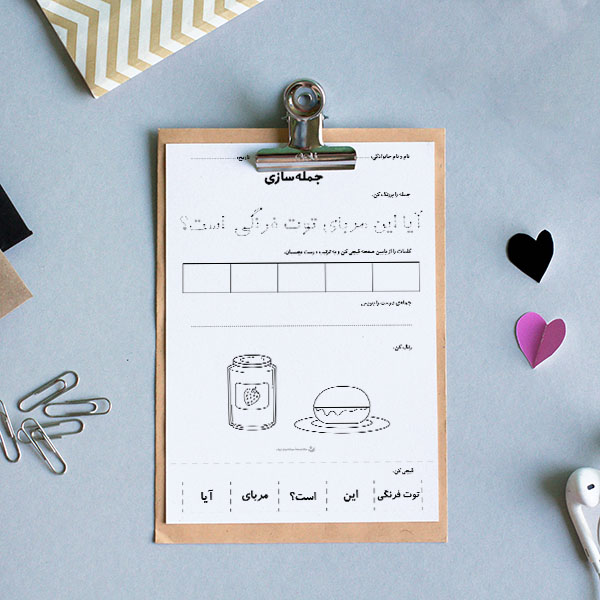 نام و نام خانوادگی: تاریخ:
جمله سازی
جمله را پررنگ کن.
آیا این مربای توت فرنگی است؟
کلمات را از پایین صفحه قیچی کن و به ترتیب درست بچسبان.
جمله‌ی درست را بنویس
رنگ کن.
قیچی کن.
توت فرنگی این است؟ مربای آیا